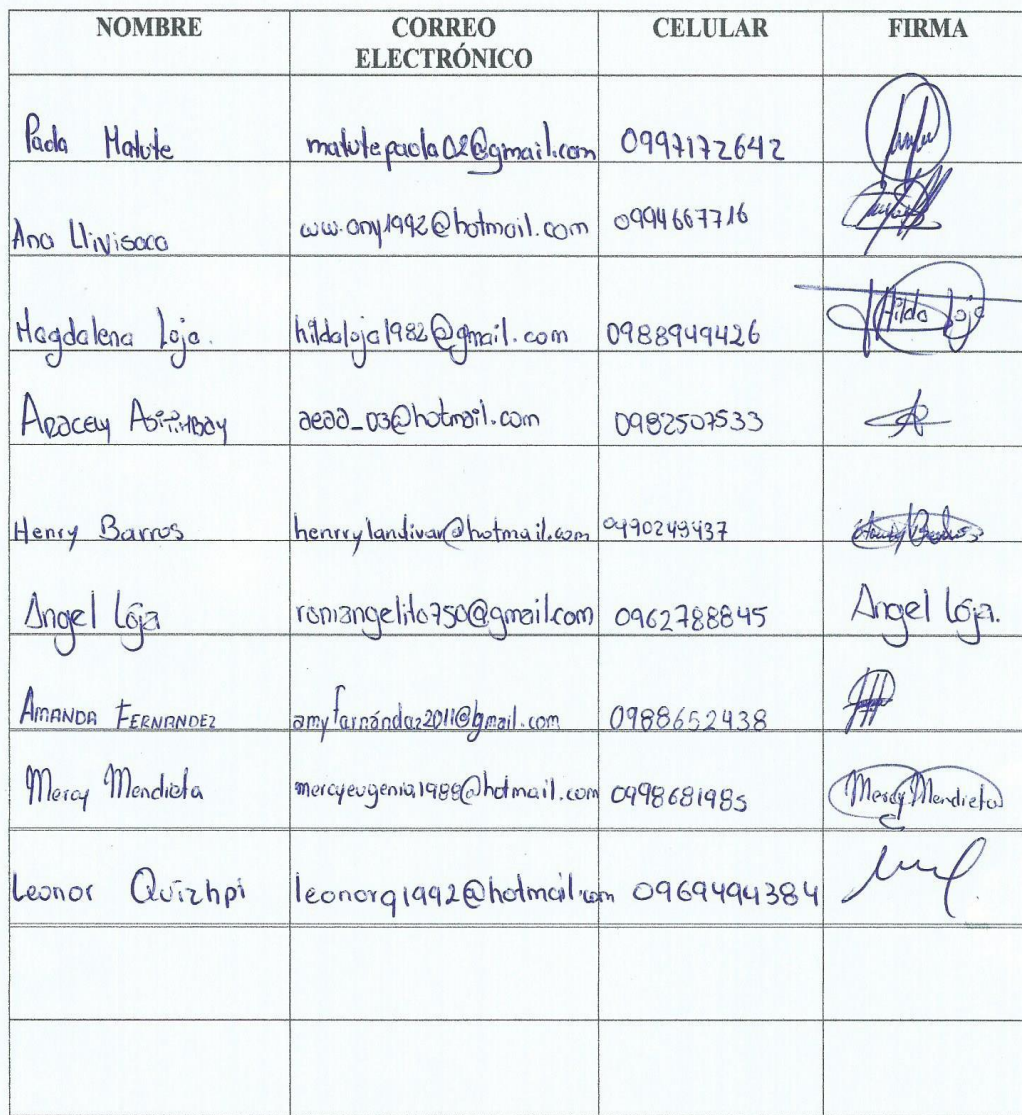 NOMBRE CORREO ELECTRÓNICO CELULAR FIRMA
Paola Matute matutepaola02@gmail.com 0997172642
Ana Llivisaca ww.any1992@hotmail.com 0994667716
Magdalena Loja. hildaloja1982@gmail.com 0988949426 Hilda Loja
Aracely aeaa_03@hotmail.com 0982507533
Henry Barros henrrylandivar@hotmail.com 0990249437 Henry Barros
Angel Loja romiangelito750@gmail.com 0962788845 Angel Loja.
AMANDA FERNANDEZ amyfernández2011@gmail.com 0988652438
Mercy Mendieta mercyeugenia1988@hotmail.com 0998681985 Mercy Mendieta
Leonor Quizhpi leonorq1992@hotmail.com 0969494384